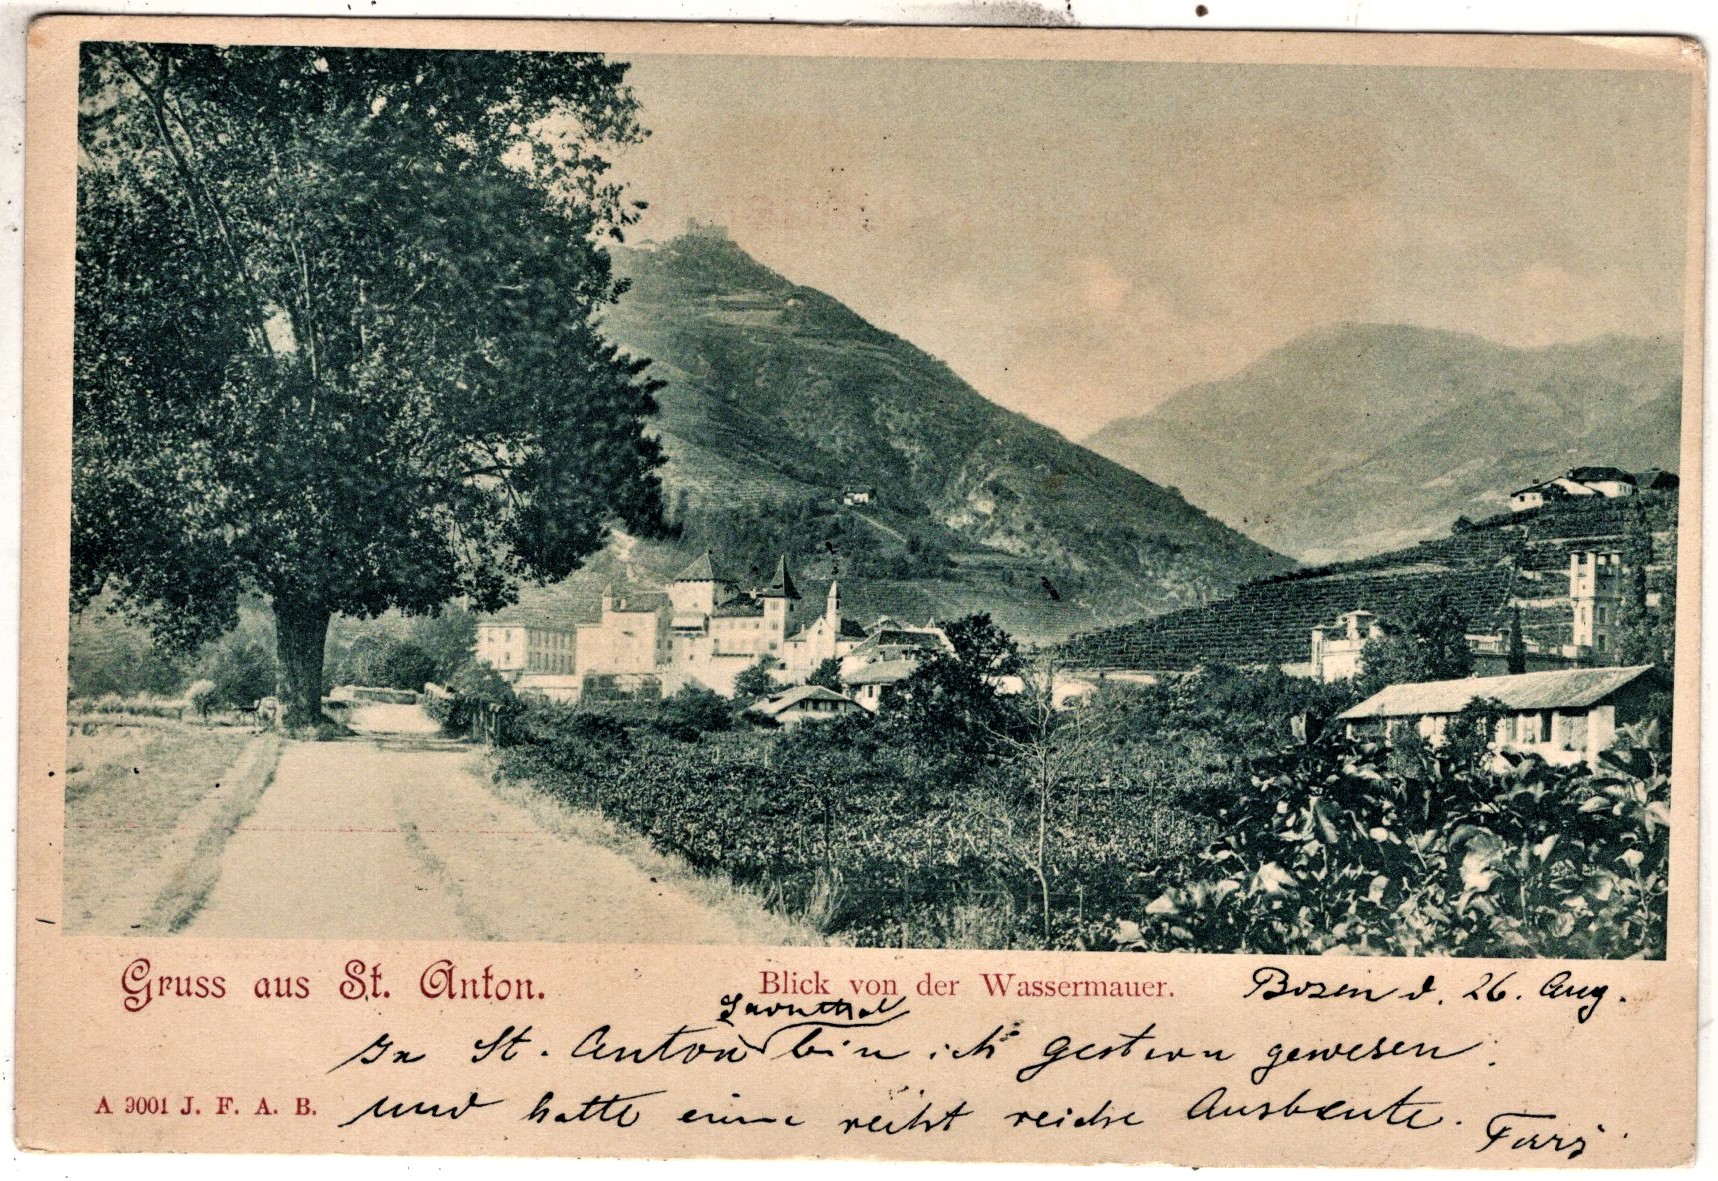 Gruss aus St. Anton.
Blick von der Wassermauer.
Bozen d. 26. Aug.
Sarnthal
In St. Anton bin ich gestern gewesen
und hatte eine recht reiche Ausbeute.
A 9001 J. F. A. B.